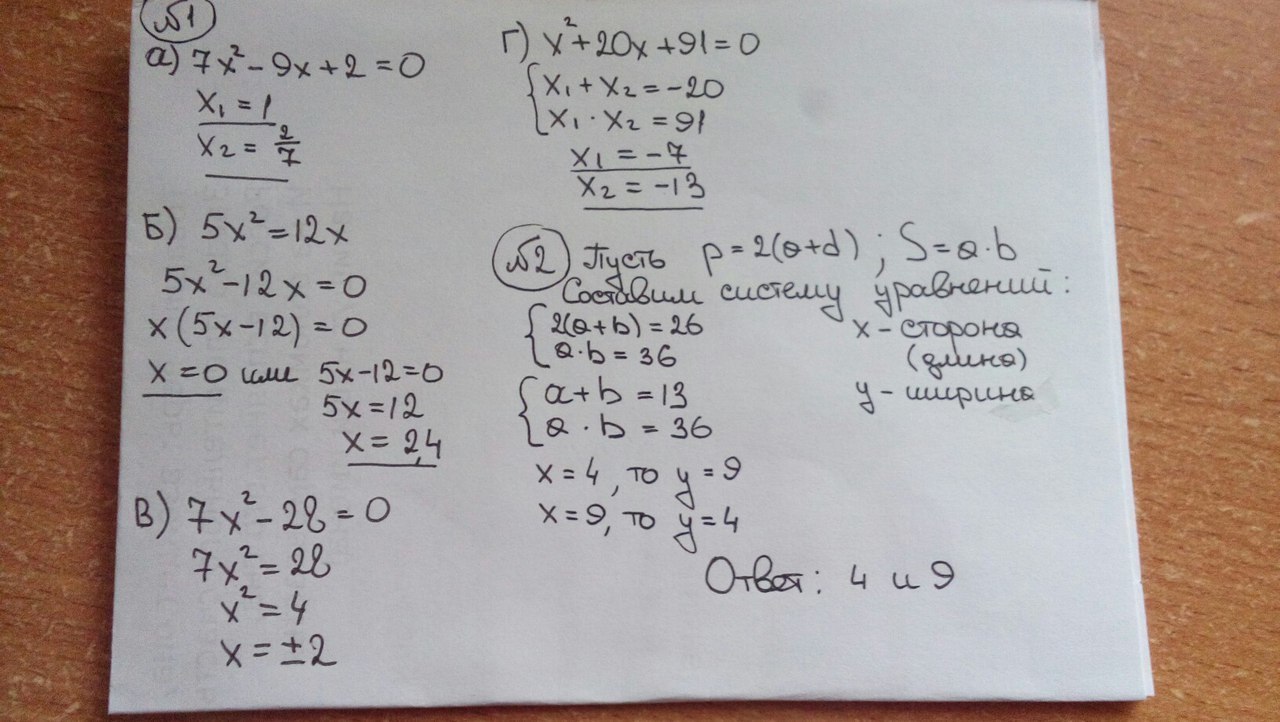 №1
а) 7x² - 9x + 2 = 0
x₁ = 1
x₂ = 2/7
Б) 5x² = 12x
5x² - 12x = 0
x(5x - 12) = 0
x = 0 или 5x - 12 = 0
5x = 12
x = 2,4
В) 7x² - 28 = 0
7x² = 28
x² = 4
x = ±2
Г) x² + 20x + 91 = 0
{ x₁ + x₂ = -20
x₁ · x₂ = 91
x₁ = -7
x₂ = -13
№2 Пусть p = 2(a+d) ; S = a·b
Составим систему уравнений:
{ 2(a+b) = 26
a·b = 36
{ a + b = 13
a · b = 36
x - сторона
(длина)
y - ширина
x = 4, то y = 9
x = 9, то y = 4
Ответ: 4 и 9